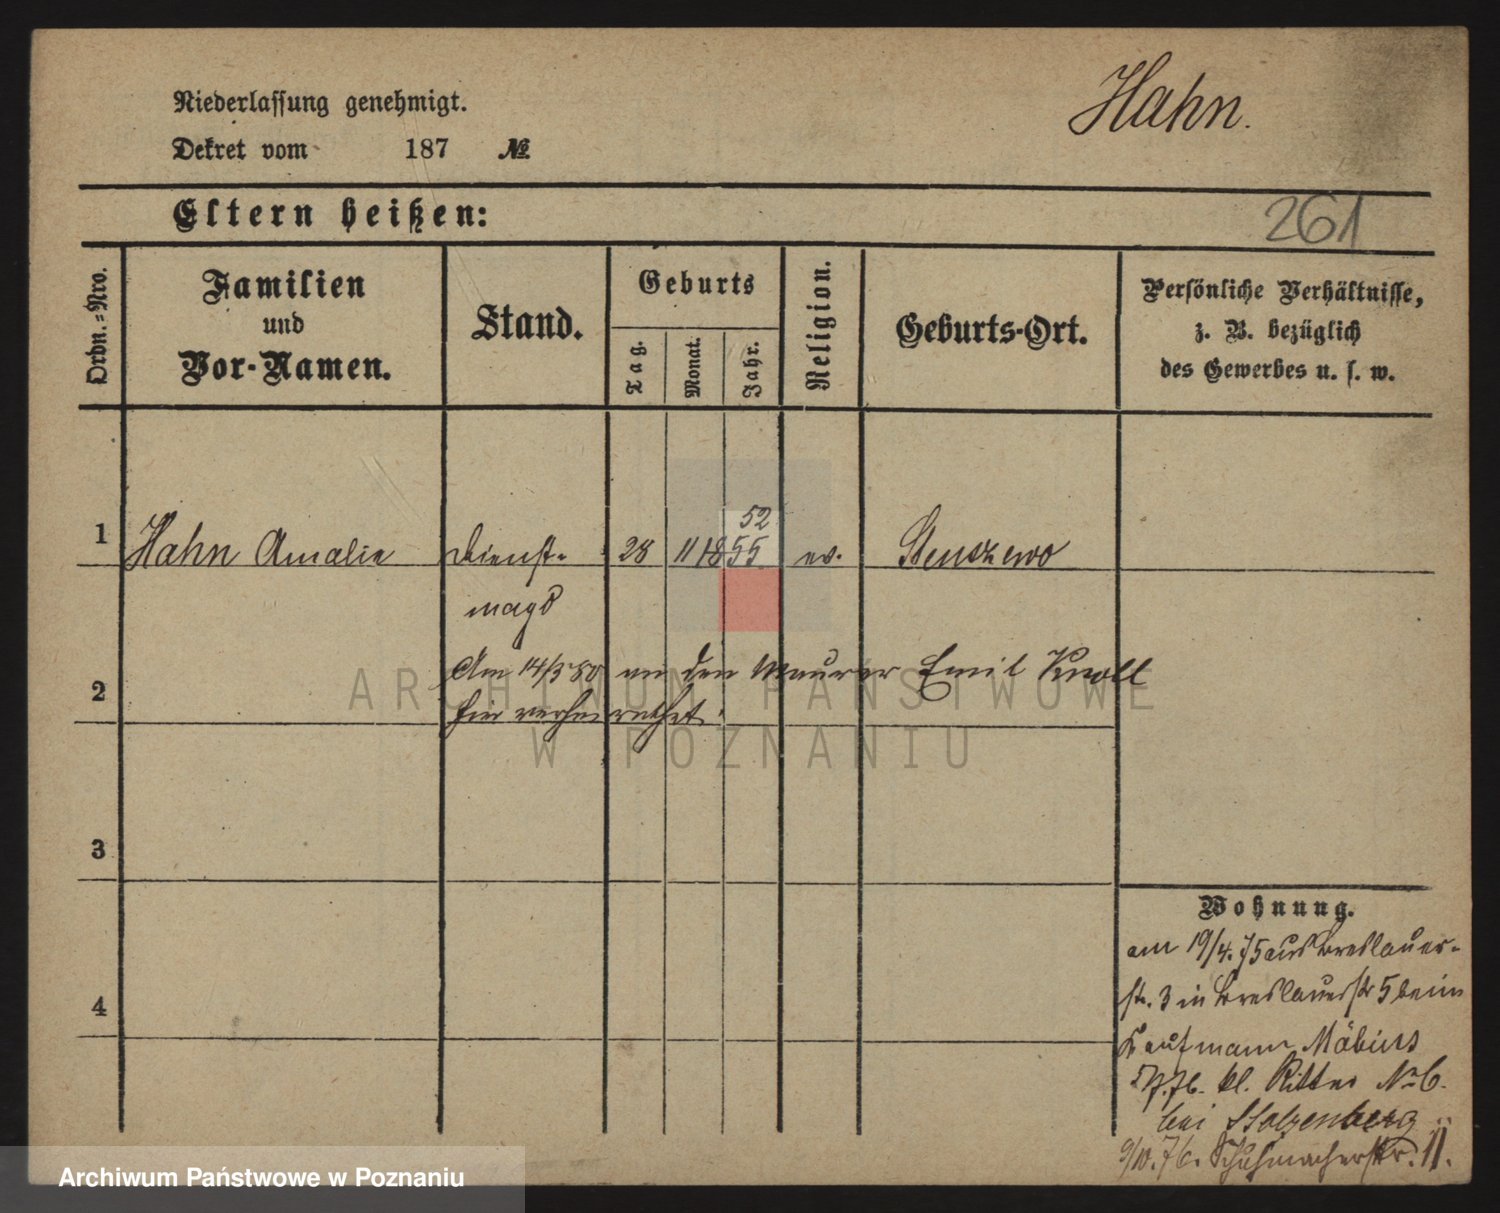 Hahn.
Niederlassung genehmigt.
Dekret vom 187 №
Eltern heißen:
261
Ordn.-Nro.
Familien
und
Vor-Namen.
Stand.
Geburts
Tag.
Monat.
Jahr.
Religion.
Geburts-Ort.
Persönliche Verhältnisse,
z. B. bezüglich
des Gewerbes u. s. w.
52
1 Hahn Amalie Dienst- 28 11 1855 ev. Stenszewo
magd
Am 14/3 80 an den Maurer Emil Knoll
2
hier verheirathet.
3
4
Wohnung.
am 19/4. 75 aus Breslauer-
str. 3 in Breslauerstr 5 beim
Kaufmann Möbius
7.76. kl. Ritter No 6.
bei Stolzenberg
9/10. 76. Schuhmacherstr. 11.
ARCHIWUM PAŃSTWOWE
W POZNANIU
Archiwum Państwowe w Poznaniu